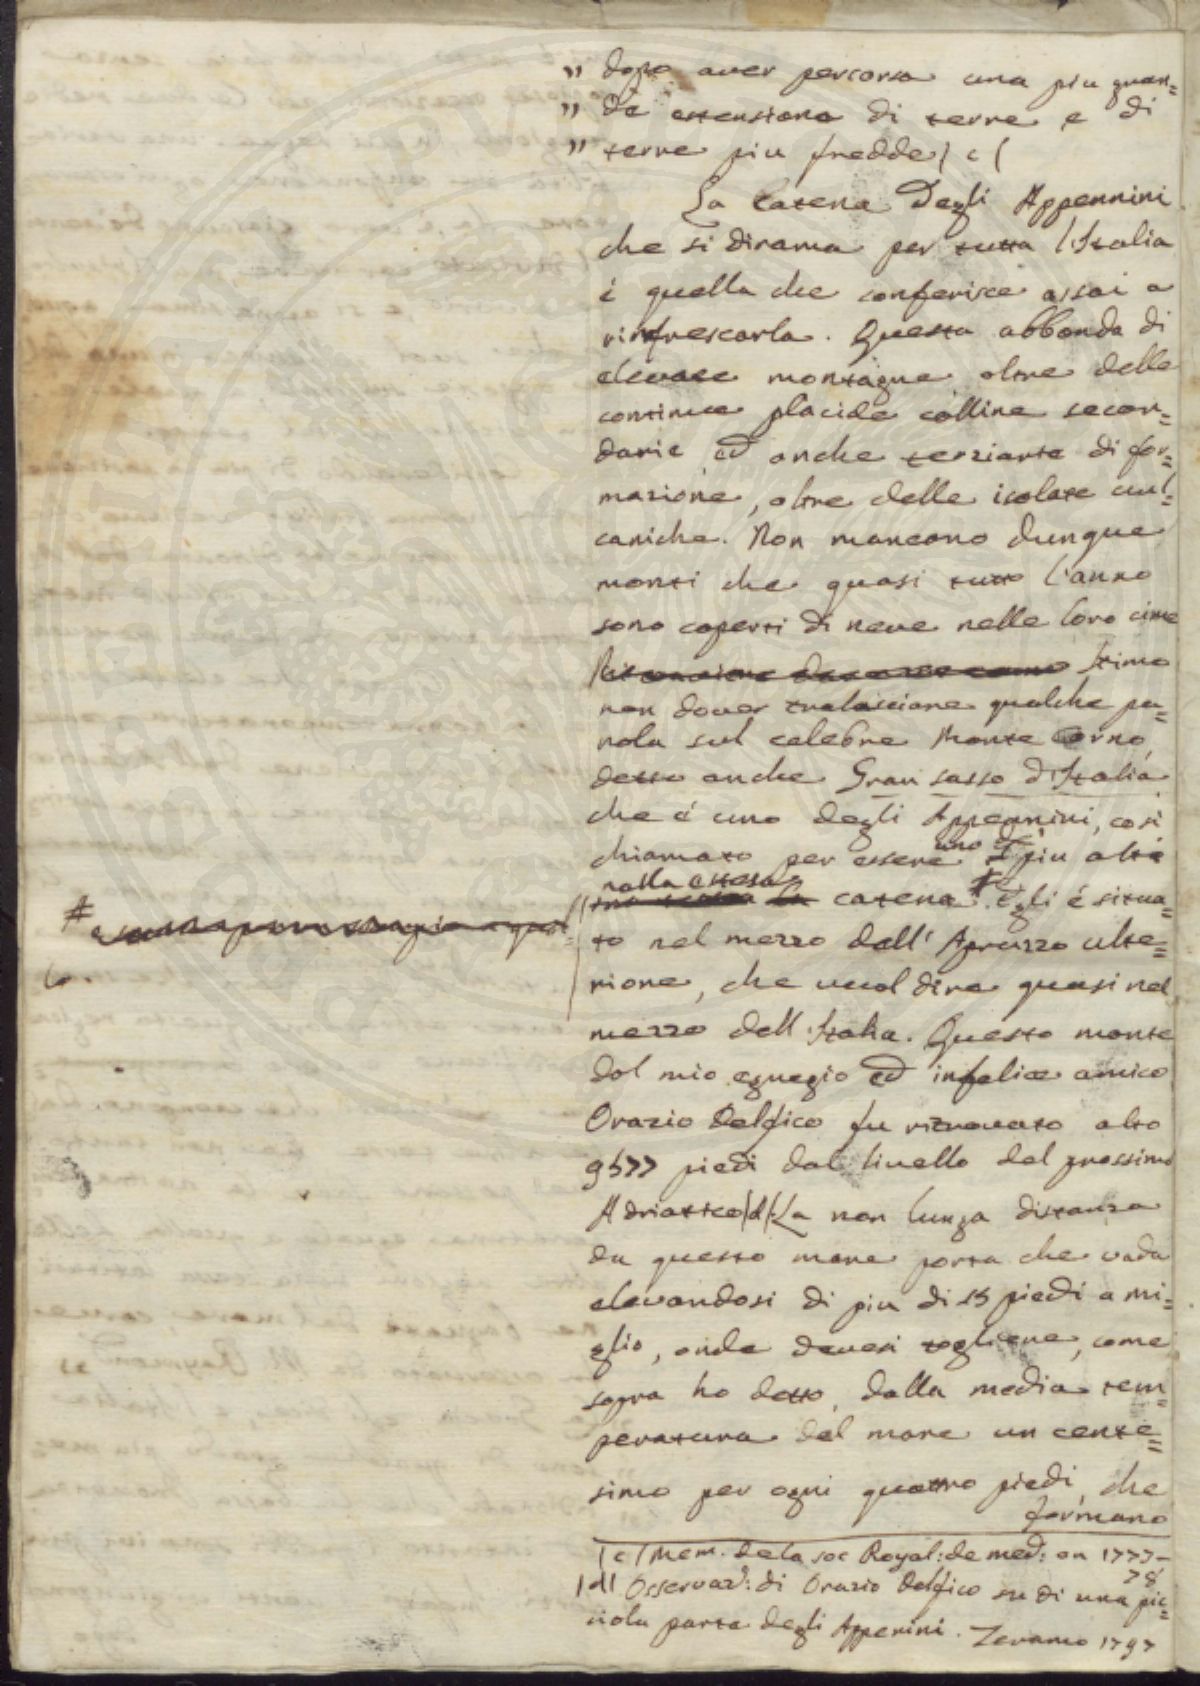 " dopo aver percorsa una piu gran=
" de estensione di terre e di
" terre piu fredde (c(
La Catena degli Appennini
che si dirama per tutta l'Italia
é quella che conferisce assai a
rinfrescarla. Questa abbonda di
elevate montagne oltre delle
continue placide colline secon=
darie ed anche terziarie di for=
mazione, oltre delle isolate vul=
caniche. Non mancano dunque
monti che quasi tutto l'anno
sono coperti di neve nelle loro cime
Stimo
non dover tralasciare qualche pa=
rola sul celebre Monte Corno,
detto anche Gran sasso d'Italia
che é uno degli Appennini, cosi
chiamato per essere uno de' piu alti
nella estesa catena #. Egli é situa=
to nel mezzo dell' Apruzzo ulte=
riore, che vuol dire quasi nel
mezzo dell'Italia. Questo monte
dal mio egregio ed infelice amico
Orazio Delfico fu ritrovato alto
9577 piedi dal livello del prossimo
Adriatico (d( La non lunga distanza
da questo mare porta che vada
elevandosi di piu di 15 piedi a mi=
glio, onde devesi togliere, come
sopra ho detto, dalla media tem=
peratura del mare un cente=
simo per ogni quattro piedi, che
formano
(c( Mem. de la soc Royal: de med: an 1777-
78
(d( Osservaz: di Orazio Delfico su di una pic=
ciola parte degli Appenini. Teramo 1797
#